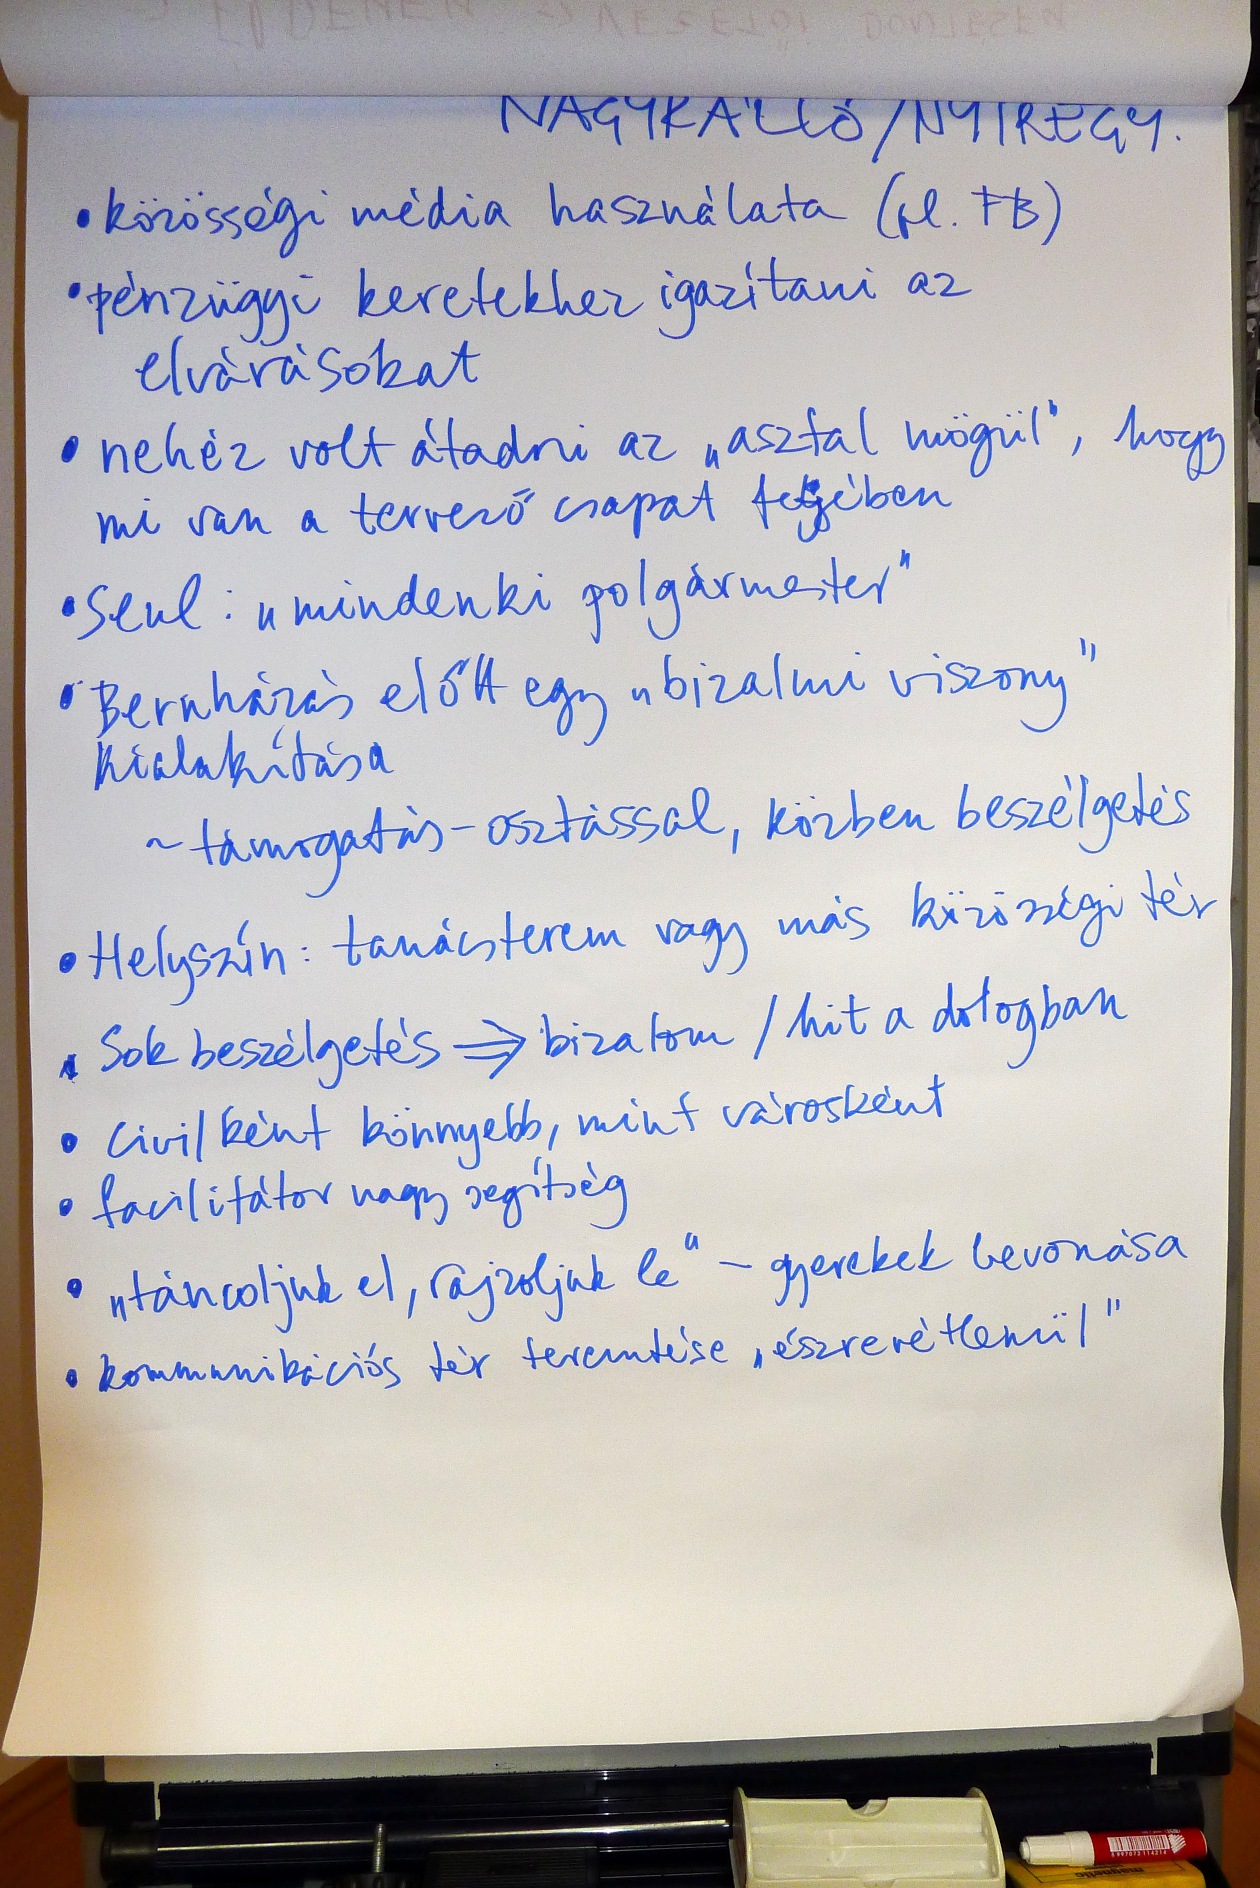 NAGYKÁLLÓ/NYÍREGY.
• közösségi média használata (pl. FB)
• pénzügyi keretekhez igazítani az
elvárásokat
• nehéz volt átadni az „asztal mögül", hogy
mi van a tervező csapat fejében
• Seul: „mindenki polgármester"
• Beruházás előtt egy „bizalmi viszony"
kialakítása
~ támogatás-osztással, közben beszélgetés
• Helyszín: tanácsterem vagy más közösségi tér
• Sok beszélgetés ⇒ bizalom / hit a dologban
• civilként könnyebb, mint városként
• facilitátor nagy segítség
• „táncoljuk el, rajzoljuk le" – gyerekek bevonása
• kommunikációs tér teremtése „észrevétlenül"
8997072114214
magnetic